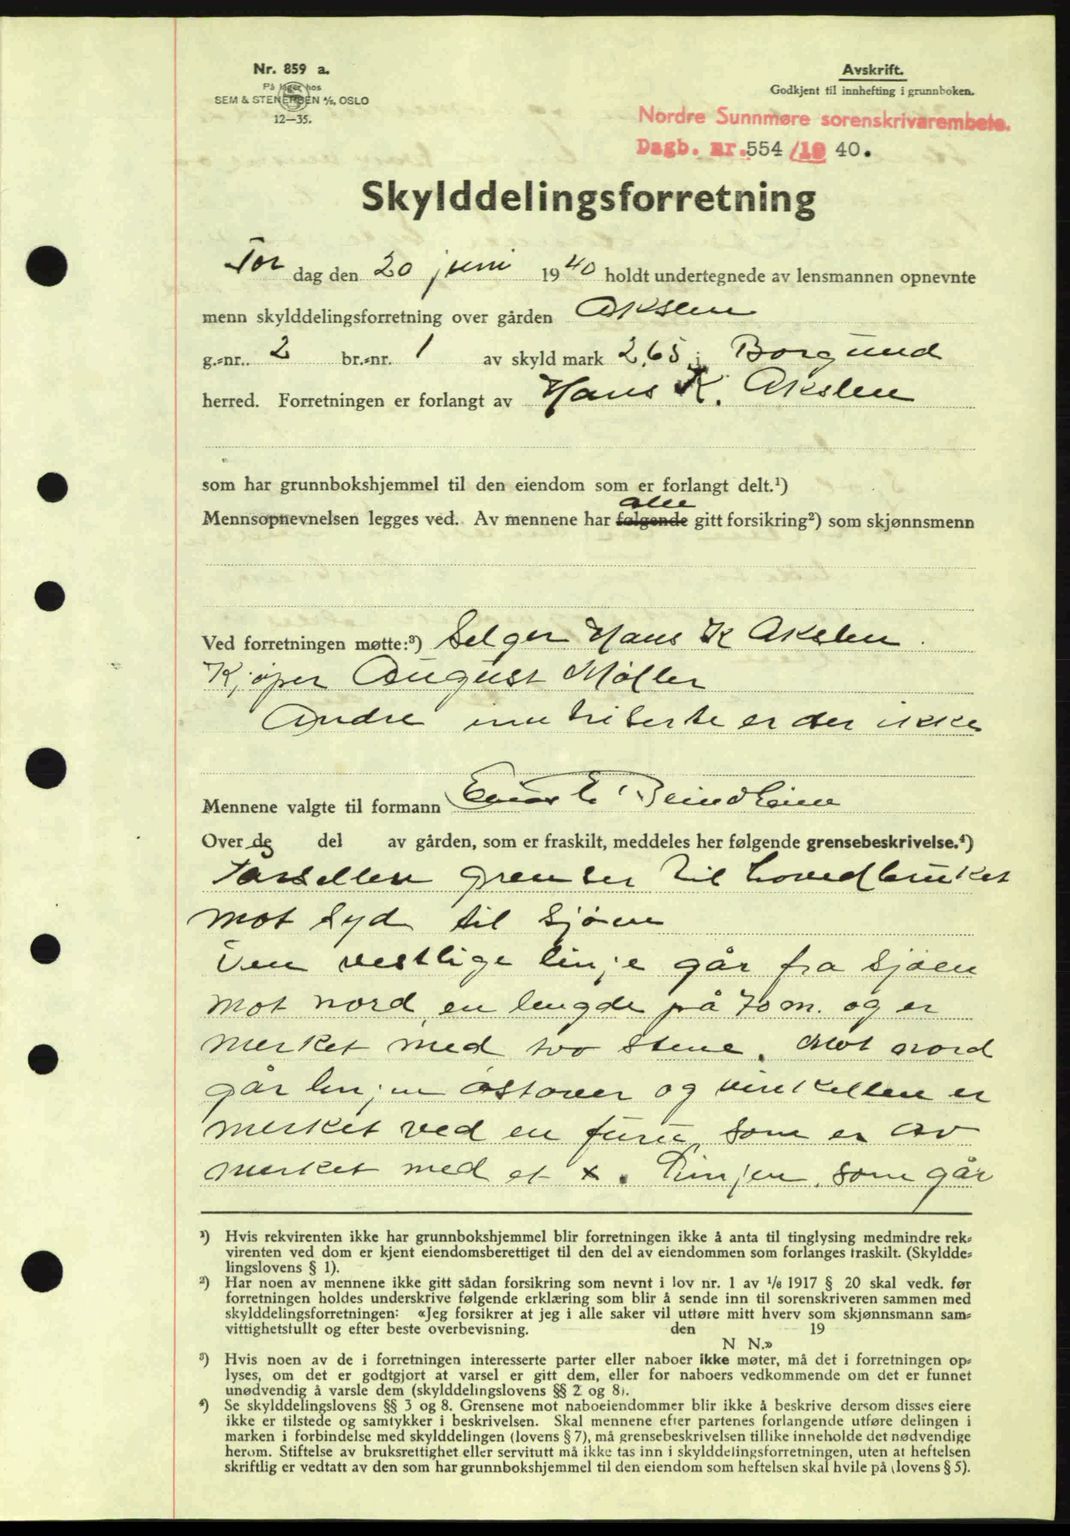 Nr. 859 a.
På lager hos
SEM & STENERSEN A/S, OSLO
12—35.
Avskrift.
Godkjent til innhefting i grunnboken.
Nordre Sunnmøre sorenskrivarembete.
Dagb. nr. 554 /19 40.
Skylddelingsforretning
Tors dag den 20 juni 1940 holdt undertegnede av lensmannen opnevnte
menn skylddelingsforretning over gården Akslen
g.-nr. 2 br.-nr. 1 av skyld mark 2,65 i Borgund
herred. Forretningen er forlangt av Hans K. Akslen
som har grunnbokshjemmel til den eiendom som er forlangt delt.¹)
alle
Mennsopnevnelsen legges ved. Av mennene har følgende gitt forsikring²) som skjønnsmenn
Ved forretningen møtte:³) Selger Hans K Akslen.
Kjøper August Møller
Andre inntriserte er der ikke
Mennene valgte til formann E. Reindheim
Over de del av gården, som er fraskilt, meddeles her følgende grensebeskrivelse.⁴)
Parsellen grenser til hovedbruket
mot syd til sjøen
Den vestlige linje går fra sjøen
mot nord, en lengde på 70 m. og er
merket med two stene. Mot nord
går linjen østover og vinkellen er
merket ved en furu, som er av
merket med et x. Linjen, som går
¹) Hvis rekvirenten ikke har grunnbokshjemmel blir forretningen ikke å anta til tinglysing medmindre rek-
virenten ved dom er kjent eiendomsberettiget til den del av eiendommen som forlanges fraskilt. (Skyldde-
lingslovens § 1).
²) Har noen av mennene ikke gitt sådan forsikring som nevnt i lov nr. 1 av 1/8 1917 § 20 skal vedk. før
forretningen holdes underskrive følgende erklæring som blir å sende inn til sorenskriveren sammen med
skylddelingsforretningen: «Jeg forsikrer at jeg i alle saker vil utføre mitt hverv som skjønnsmann sam-
vittighetsfullt og efter beste overbevisning. den 19
N N.»
³) Hvis noen av de i forretningen interesserte parter eller naboer ikke møter, må det i forretningen op-
lyses, om det er godtgjort at varsel er gitt dem, eller for naboers vedkommende om det er funnet
unødvendig å varsle dem (skylddelingslovens §§ 2 og 8).
⁴) Se skylddelingslovens §§ 3 og 8. Grensene mot naboeiendommer blir ikke å beskrive dersom disses eiere
ikke er tilstede og samtykker i beskrivelsen. Skal mennene efter partenes forlangende utføre delingen i
marken i forbindelse med skylddelingen (lovens § 7), må grensebeskrivelsen tillike inneholde det nødvendige
herom. Stiftelse av bruksrettighet eller servitutt må ikke tas inn i skylddelingsforretningen, uten at heftelsen
skriftlig er vedtatt av den som har grunnbokshjemmel til den eiendom som heftelsen skal hvile på (lovens § 5).